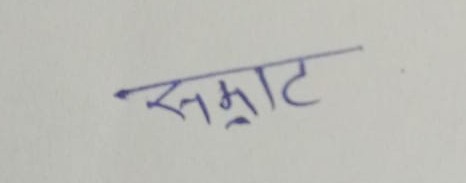 सम्राट